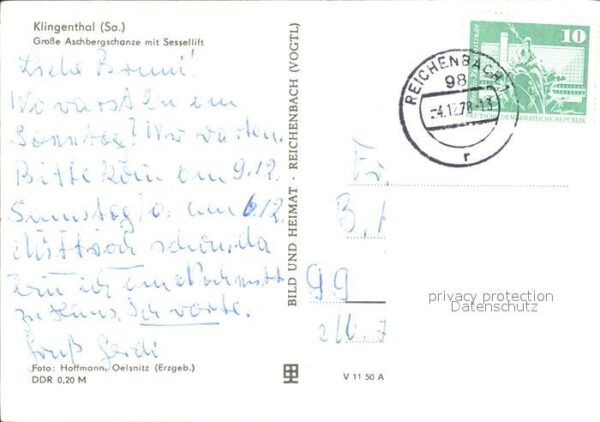 Klingenthal (Sa.)
Große Aschbergschanze mit Sessellift
Liebe Brunni!
Wo warst Du am
Sonntag? Wir warten.
Bitte komm am 9.12.
Samstag o. am 6.12.
Mittwoch schon, da
bin ich am Nachmitt
zu Haus. Ich warte.
Gruß Gerdi
Foto: Hoffmann, Oelsnitz (Erzgeb.)
DDR 0,20 M
BILD UND HEIMAT · REICHENBACH (VOGTL)
V 11 50 A
10
DEUTSCHE DEMOKRATISCHE REPUBLIK
REICHENBACH 1
98
-4.12.78-13
r
Fr.
B.
99
privacy protection
Datenschutz